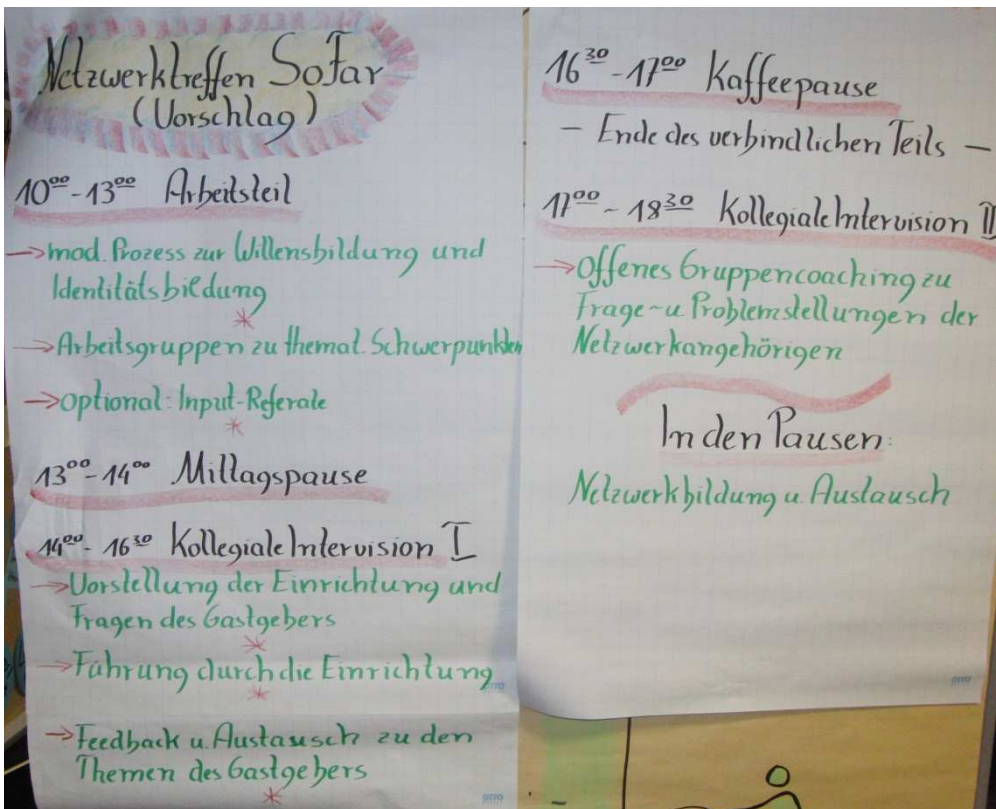 Netzwerktreffen SoFar
(Vorschlag)
10⁰⁰-13⁰⁰ Arbeitsteil
→ mod. Prozess zur Willensbildung und
Identitätsbildung
*
→ Arbeitsgruppen zu themat. Schwerpunkten
→ optional: Input-Referate
*
13⁰⁰-14⁰⁰ Mittagspause
14⁰⁰-16³⁰ Kollegiale Intervision I
→ Vorstellung der Einrichtung und
Fragen des Gastgebers
*
→ Führung durch die Einrichtung
*
→ Feedback u. Austausch zu den
Themen des Gastgebers
*
16³⁰-17⁰⁰ Kaffeepause
- Ende des verbindlichen Teils -
17⁰⁰-18³⁰ Kollegiale Intervision II
→ Offenes Gruppencoaching zu
Frage- u. Problemstellungen der
Netzwerkangehörigen
In den Pausen:
Netzwerkbildung u. Austausch